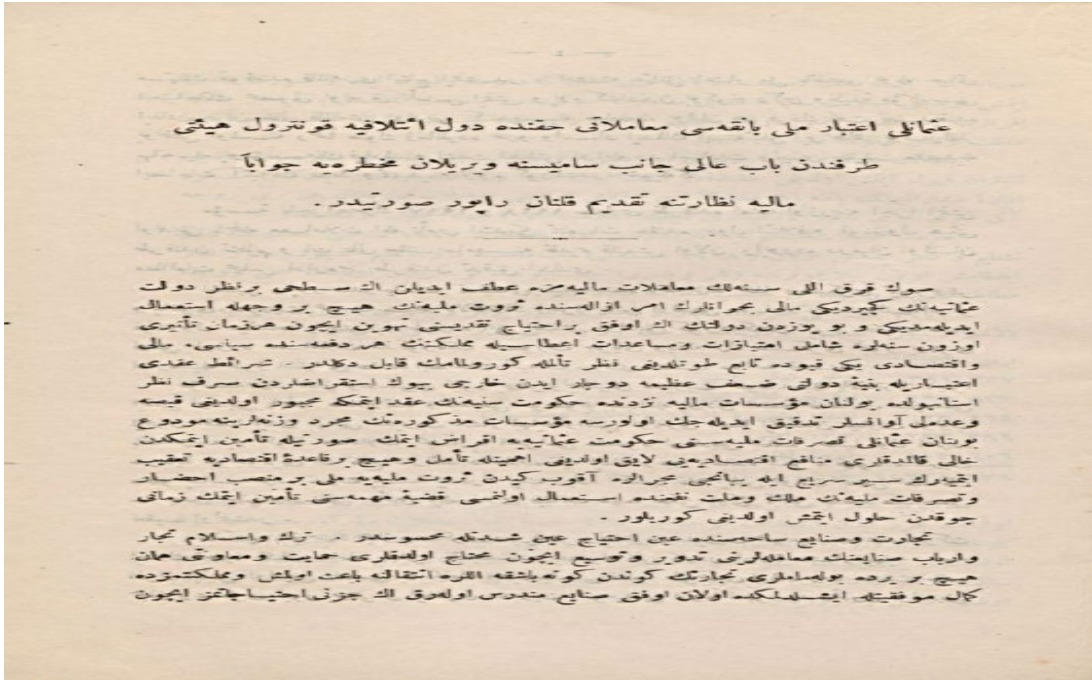 عثمانلی اعتبار ملی بانقه‌سی معاملاتی حقنده دول ائتلافیه قونترول هیئتی
طرفندن باب عالی جانب سامیسنه ویریلان مخطره‌یه جواباً
مالیه نظارتنه تقدیم قلنان راپور صورتیدر .
صوك قرق اللی سنه‌لك معاملات مالیه‌مزه عطف ایدیلن اك سطحی بر نظر دولت
عثمانیه‌نك كچیردیكی مالی بحرانلرك امر ازاله‌سنده ثروت ملیه‌نك هیچ بر وجهله استعمال
ایدیله‌مدیكی و بو یوزدن دولتك اك اوفق بر احتیاج نقدیسنی تهوین ایچون هر زمان تأثیری
اوزون سنه‌لره شامل امتیازات ومساعدات اعطاسیله مملكتك هر دفعه‌سنده سیاسی، مالی
واقتصادی یكی قیوده تابع طوتلدیغی نظر تأمله كورولمامك قابل دكلدر . شرائط عقدی
اعتباریله بنیۀ دولتی ضعف عظیمه دوچار ایدن خارجی بیوك استقراضلردن صرف نظر
استانبولده بولنان مؤسسات مالیه نزدنده حكومت سنیه‌نك عقد ایتمكه مجبور اولدیغی قیصه
وعده‌لی آوانسلر تدقیق ایدیله‌جك اولورسه مؤسسات مذكوره‌نك مجرد وزنه‌لرینه مودوع
بولنان عثمانلی تصرفات ملیه‌سنی حكومت عثمانیه‌یه اقراض ایتمك صورتیله تأمین ایتمكدن
خالی قالمدقلری منافع اقتصادیه‌یی لایق اولدیغی اهمیتله تأمل وهیچ بر قاعدۀ اقتصادیه تعقیب
ایتمیه‌رك سیر سریع ایله یبانجی مجرالره آقوب كیدن ثروت ملیه‌یه ملی بر منصب احضار
وتصرفات ملیه‌نك ملك وملت نفعنده استعمال اولنمسی قضیۀ مهمه‌سنی تأمین ایتمك زمانی
چوقدن حلول ایتمش اولدیغی كوریلور .
تجارت وصنایع ساحه‌سنده عین احتیاج عین شدتله محسوسدر . ترك واسلام تجار
وارباب صنایعنك معامله‌لرینی تدویر وتوسیع ایچون محتاج اولدقلری حمایت ومعاونتی همان
هیچ بر یرده بوله‌مامه‌لری تجارتك كوندن كونه باشقه اللره انتقالنه باعث اولمش ومملكتمزده
كمال موفقیتله ایشله‌مكده اولان اوفق صنایع مندرس اوله‌رق اك جزئی احتیاجاتمز ایچون